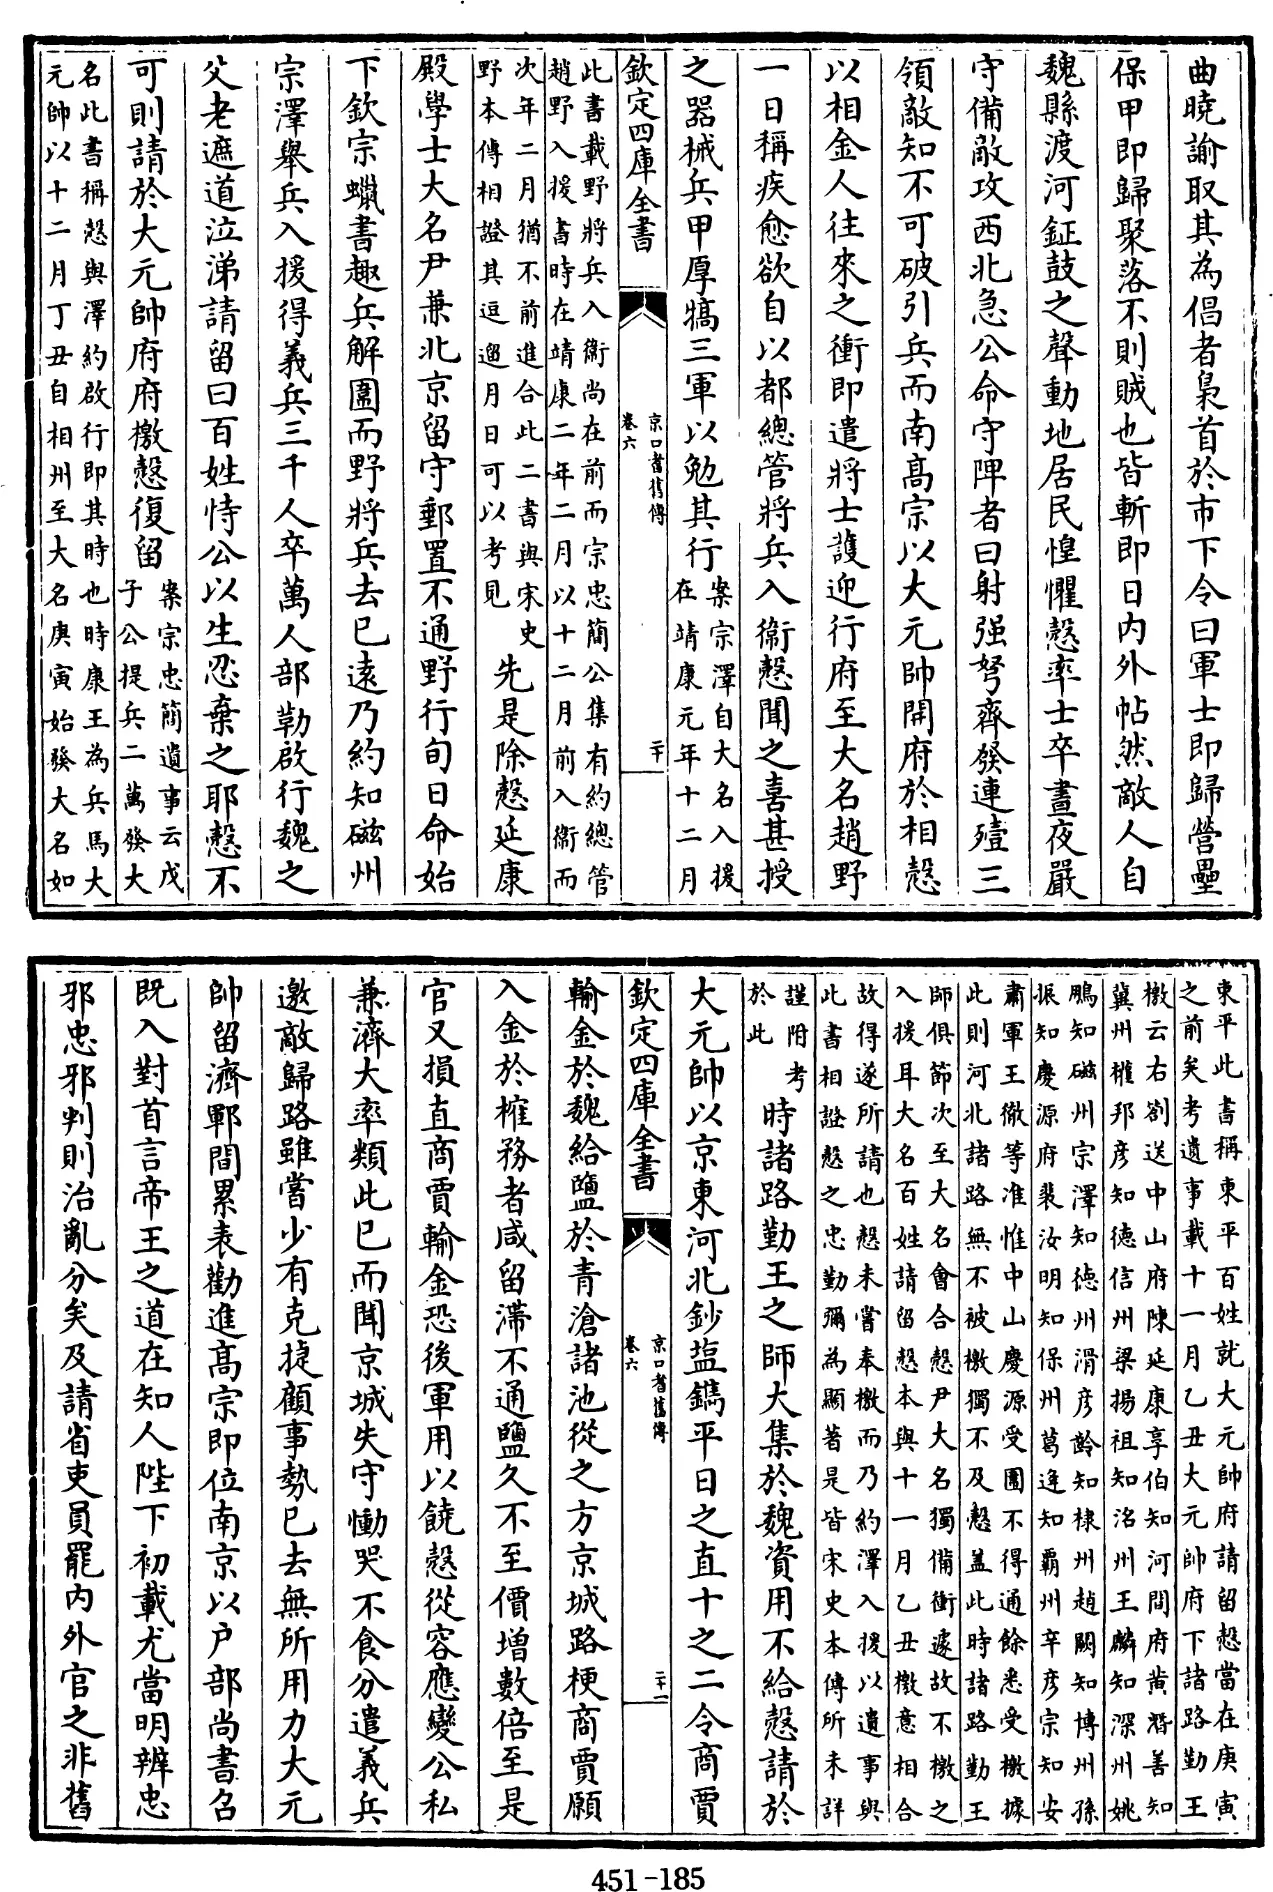 曲曉諭取其為倡者梟首於市下令曰軍士即歸營壘
保甲即歸聚落不則賊也皆斬即日内外帖然敵人自
魏縣渡河鉦鼓之聲動地居民惶懼慤率士卒晝夜嚴
守備敵攻西北急公命守陴者曰射强弩齊發連殪三
領敵知不可破引兵而南髙宗以大元帥開府於相慤
以相金人往來之衝即遣將士䕶迎行府至大名趙野
一日稱疾愈欲自以都總管將兵入衞慤聞之喜甚授
之器械兵甲厚犒三軍以勉其行
案宗澤自大名入援
在靖康元年十二月
欽定四庫全書
京口耆舊傳
卷六
二十
此書載野將兵入衞尚在前而宗忠簡公集有約總管
趙野入援書時在靖康二年二月以十二月前入衞而
次年二月猶不前進合此二書與宋史
野本傳相證其逗遛月日可以考見
先是除慤延康
殿學士大名尹兼北京留守郵置不通野行旬日命始
下欽宗蠟書趣兵解圍而野將兵去已遠乃約知磁州
宗澤舉兵入援得義兵三千人卒萬人部勒啟行魏之
父老遮道泣涕請留曰百姓恃公以生忍棄之耶慤不
可則請於大元帥府府檄慤復留
案宗忠簡遺事云戊
子公提兵二萬發大
名此書稱慤與澤約啟行即其時也時康王為兵馬大
元帥以十二月丁丑自相州至大名庚寅始發大名如
東平此書稱東平百姓就大元帥府請留慤當在庚寅
之前矣考遺事載十一月乙丑大元帥府下諸路勤王
檄云右劄送中山府陳延康享伯知河間府黄潛善知
冀州權邦彦知德信州梁揚祖知洺州王麟知深州姚
鵬知磁州宗澤知德州滑彦齡知棣州趙闢知博州孫
振知慶源府裴汝明知保州葛逢知霸州辛彦宗知安
肅軍王徹等准惟中山慶源受圍不得通餘悉受檄據
此則河北諸路無不被檄獨不及慤葢此時諸路勤王
師俱節次至大名會合慤尹大名獨備衝遽故不檄之
入援耳大名百姓請留慤本與十一月乙丑檄意相合
故得遂所請也慤未嘗奉檄而乃約澤入援以遺事與
此書相證慤之忠勤彌為顯著是皆宋史本傳所未詳
謹附考
於此
時諸路勤王之師大集於魏資用不給慤請於
大元帥以京東河北鈔盐鐫平日之直十之二令商賈
欽定四庫全書
京口耆舊傳
卷六
二十一
輸金於魏給鹽於青滄諸池從之方京城路梗商賈願
入金於榷務者咸留滯不通鹽久不至價增數倍至是
官又損直商賈輸金恐後軍用以饒慤從容應變公私
兼濟大率類此已而聞京城失守慟哭不食分遣義兵
邀敵歸路雖嘗少有克捷顧事勢已去無所用力大元
帥留濟鄆間累表勸進髙宗即位南京以户部尚書召
既入對首言帝王之道在知人陛下初載尤當明辨忠
邪忠邪判則治亂分矣及請省吏員罷内外官之非舊
451-185